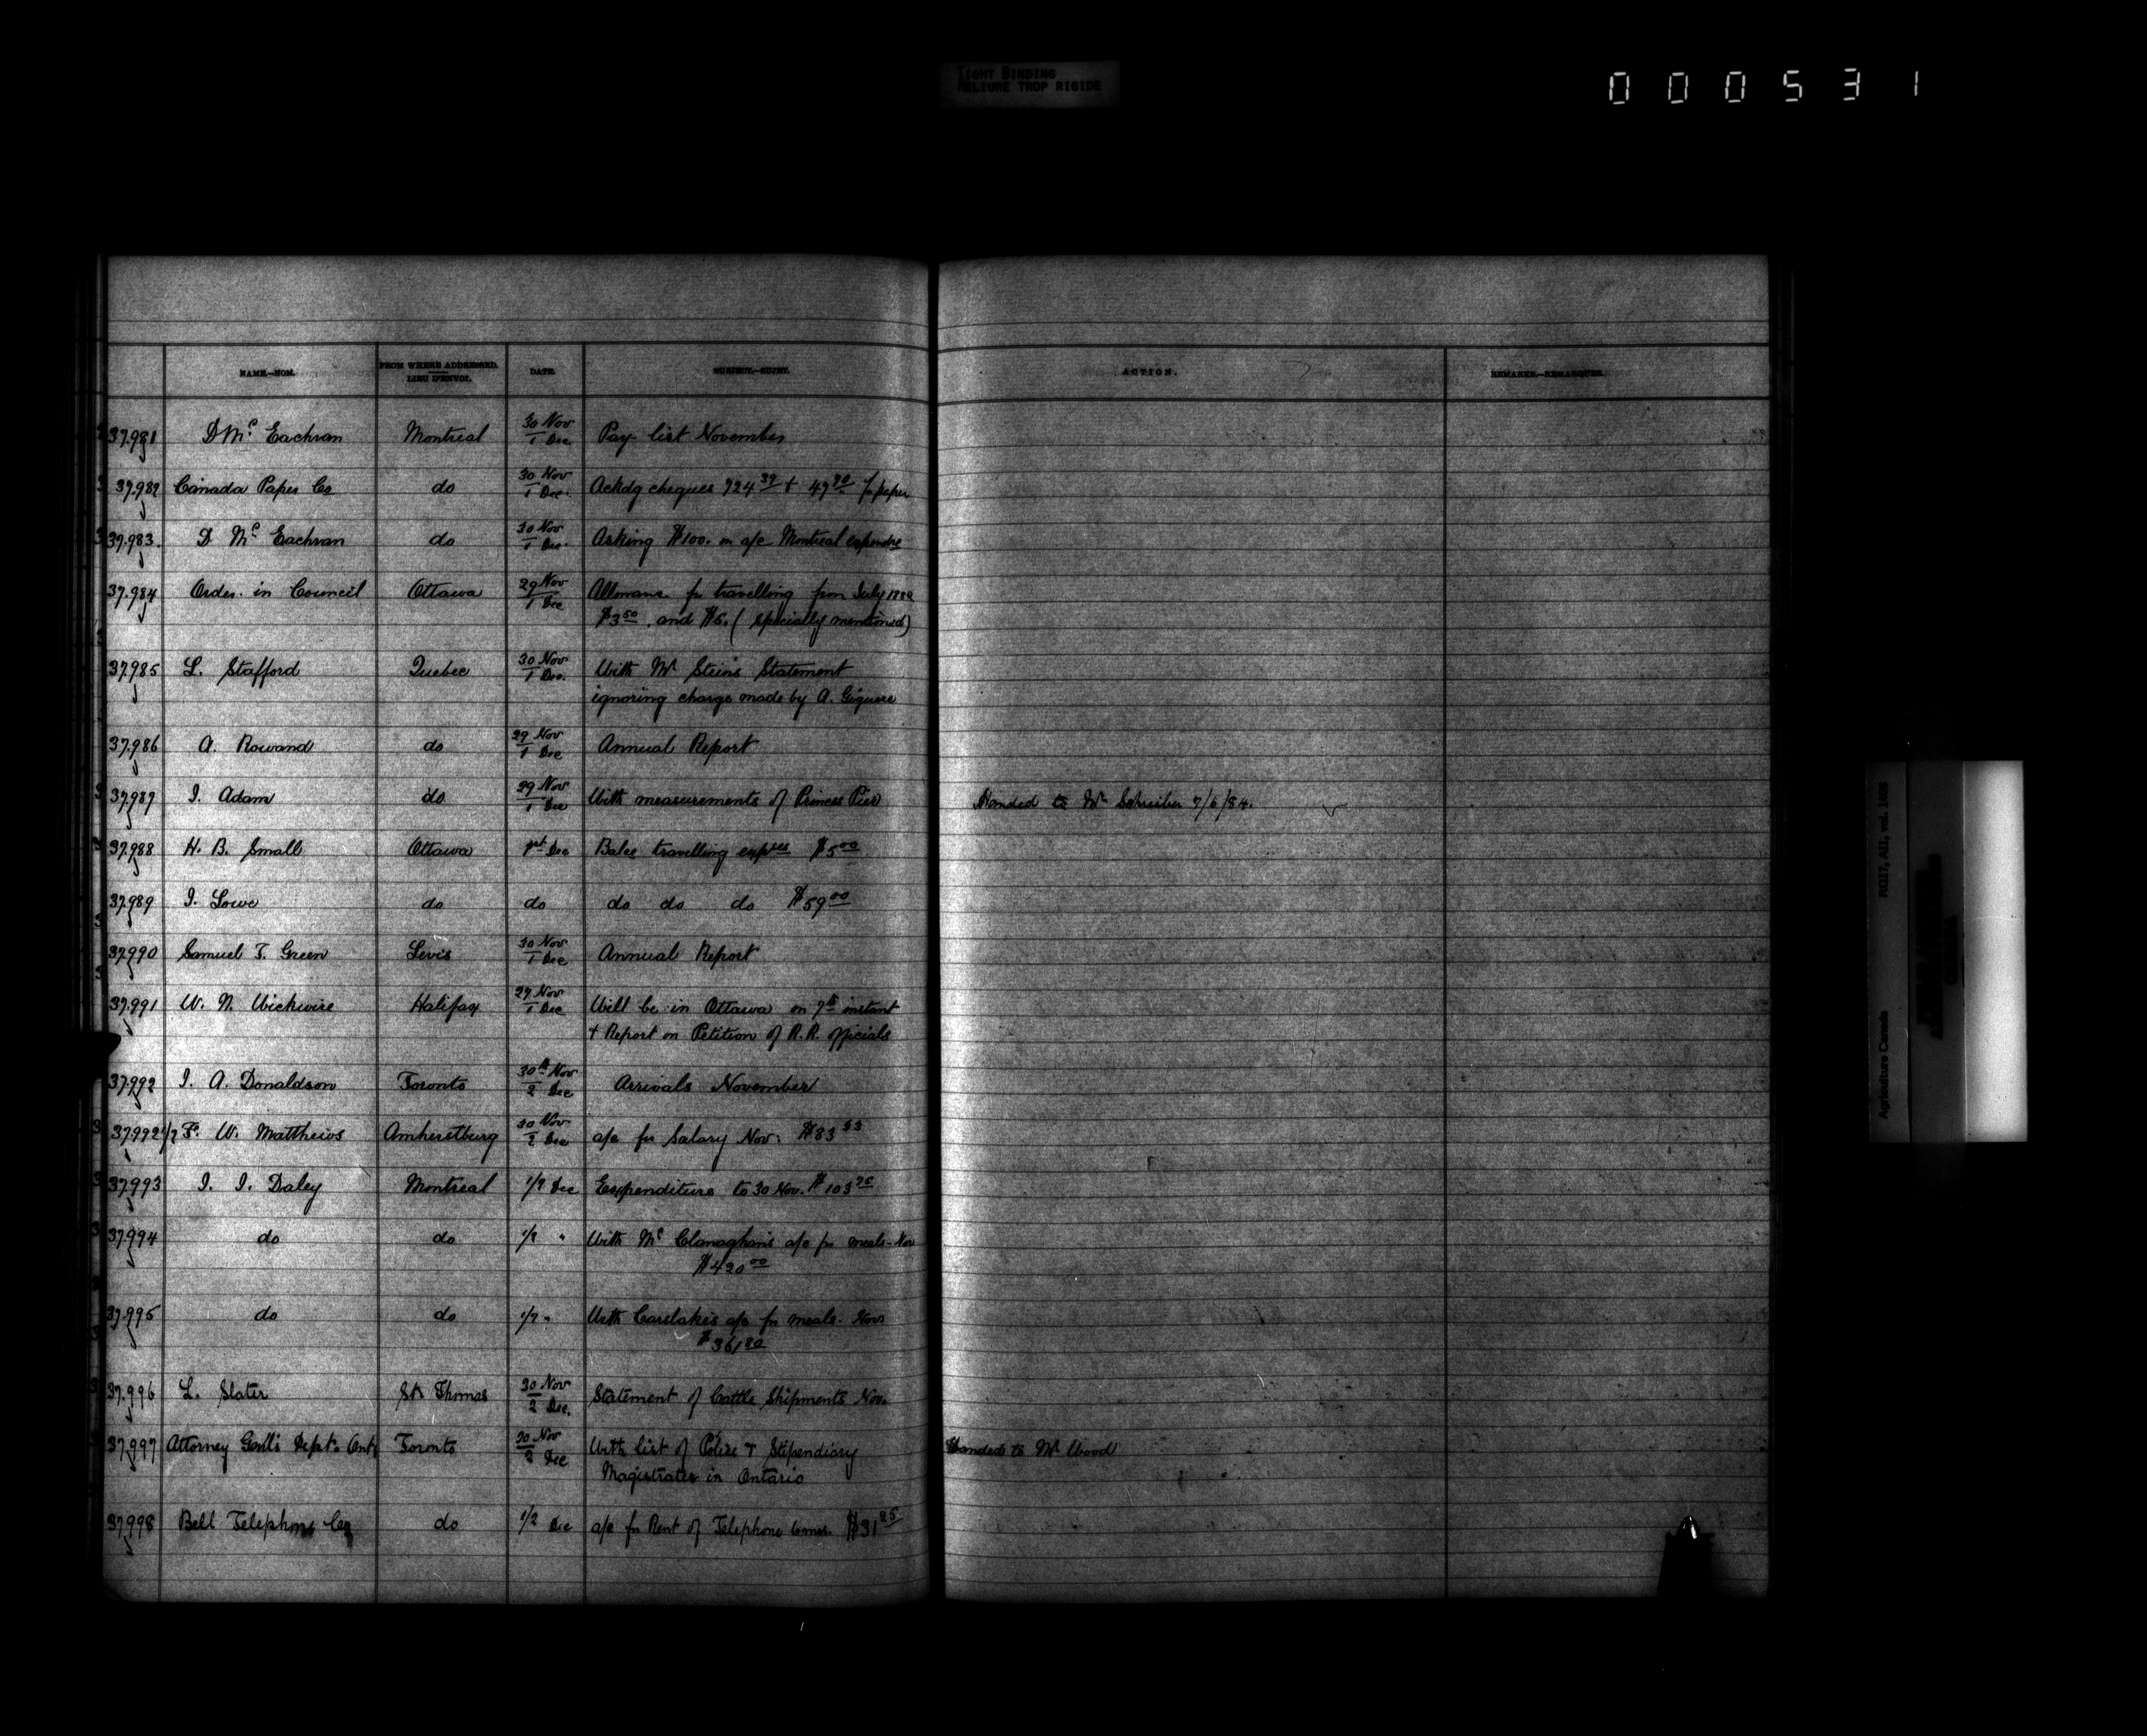 TIGHT BINDING
RELIURE TROP RIGIDE
000531
NAME.—NOM.
FROM WHERE ADDRESSED.
LIEU D'ENVOI.
DATE.
SUBJECT.—SUJET.
ACTION.
REMARKS.—REMARQUES.
37.981 D Mc Eachran Montreal 30 Nov / 1 Dec Pay list November
37.982 Canada Paper Co do 30 Nov / 1 Dec. Ackdg cheques 724 39 + 49 90 for paper
37.983. D Mc Eachran do 30 Nov / 1 Dec. Asking $100. on a/c Montreal
37.984 Order in Council Ottawa 29 Nov / 1 Dec Allowance for travelling from July 1882
$3 50, and $5. (specially mentioned)
37.985 L. Stafford Quebec 30 Nov / 1 Dec. With Mr Stein's Statement
ignoring charge made by A. Giguere
37.986 A. Rowand do 29 Nov / 1 Dec Annual Report
37.987 I. Adam do 29 Nov / 1 Dec With measurements of Princes Pier Handed to Mr Schreiber 7/6/84.
37.988 H. B. Small Ottawa 1st Dec Balce travelling expses $5 00
37.989 I. Lowe do do do do do $59 00
37.990 Samuel T. Green Levis 30 Nov / 1 Dec Annual Report
37.991 W. N. Wickwire Halifax 27 Nov / 1 Dec Will be in Ottawa on 7th instant
+ Report on Petition of R.R. officials
37.992 I. A. Donaldson Toronto 30th Nov / 2 Dec Arrivals November
37.992 1/2 F. W. Matthews Amherstburg 30 Nov / 2 Dec a/c for Salary Nov: $83 33
37.993 I. I. Daley Montreal 1/2 Dec Expenditure to 30 Nov. $103 75
37.994 do do 1/2 " With Mc Clanaghan's a/c for meals - Nov
$420 00
37.995 do do 1/2 " With Carslake's a/c for meals. Nov
$361 80
37.996 L. Slater St Thomas 30 Nov / 2 Dec. Statement of Cattle Shipments Nov.
37.997 Attorney Genl's Dept. Ont Toronto 30 Nov / 2 Dec With list of Police & Stipendiary Handed to Mr Wood
Magistrates in Ontario
37.998 Bell Telephone Co do 1/2 Dec a/c for Rent of Telephone $31 25
Agriculture Canada RG17, AII, vol. 1488